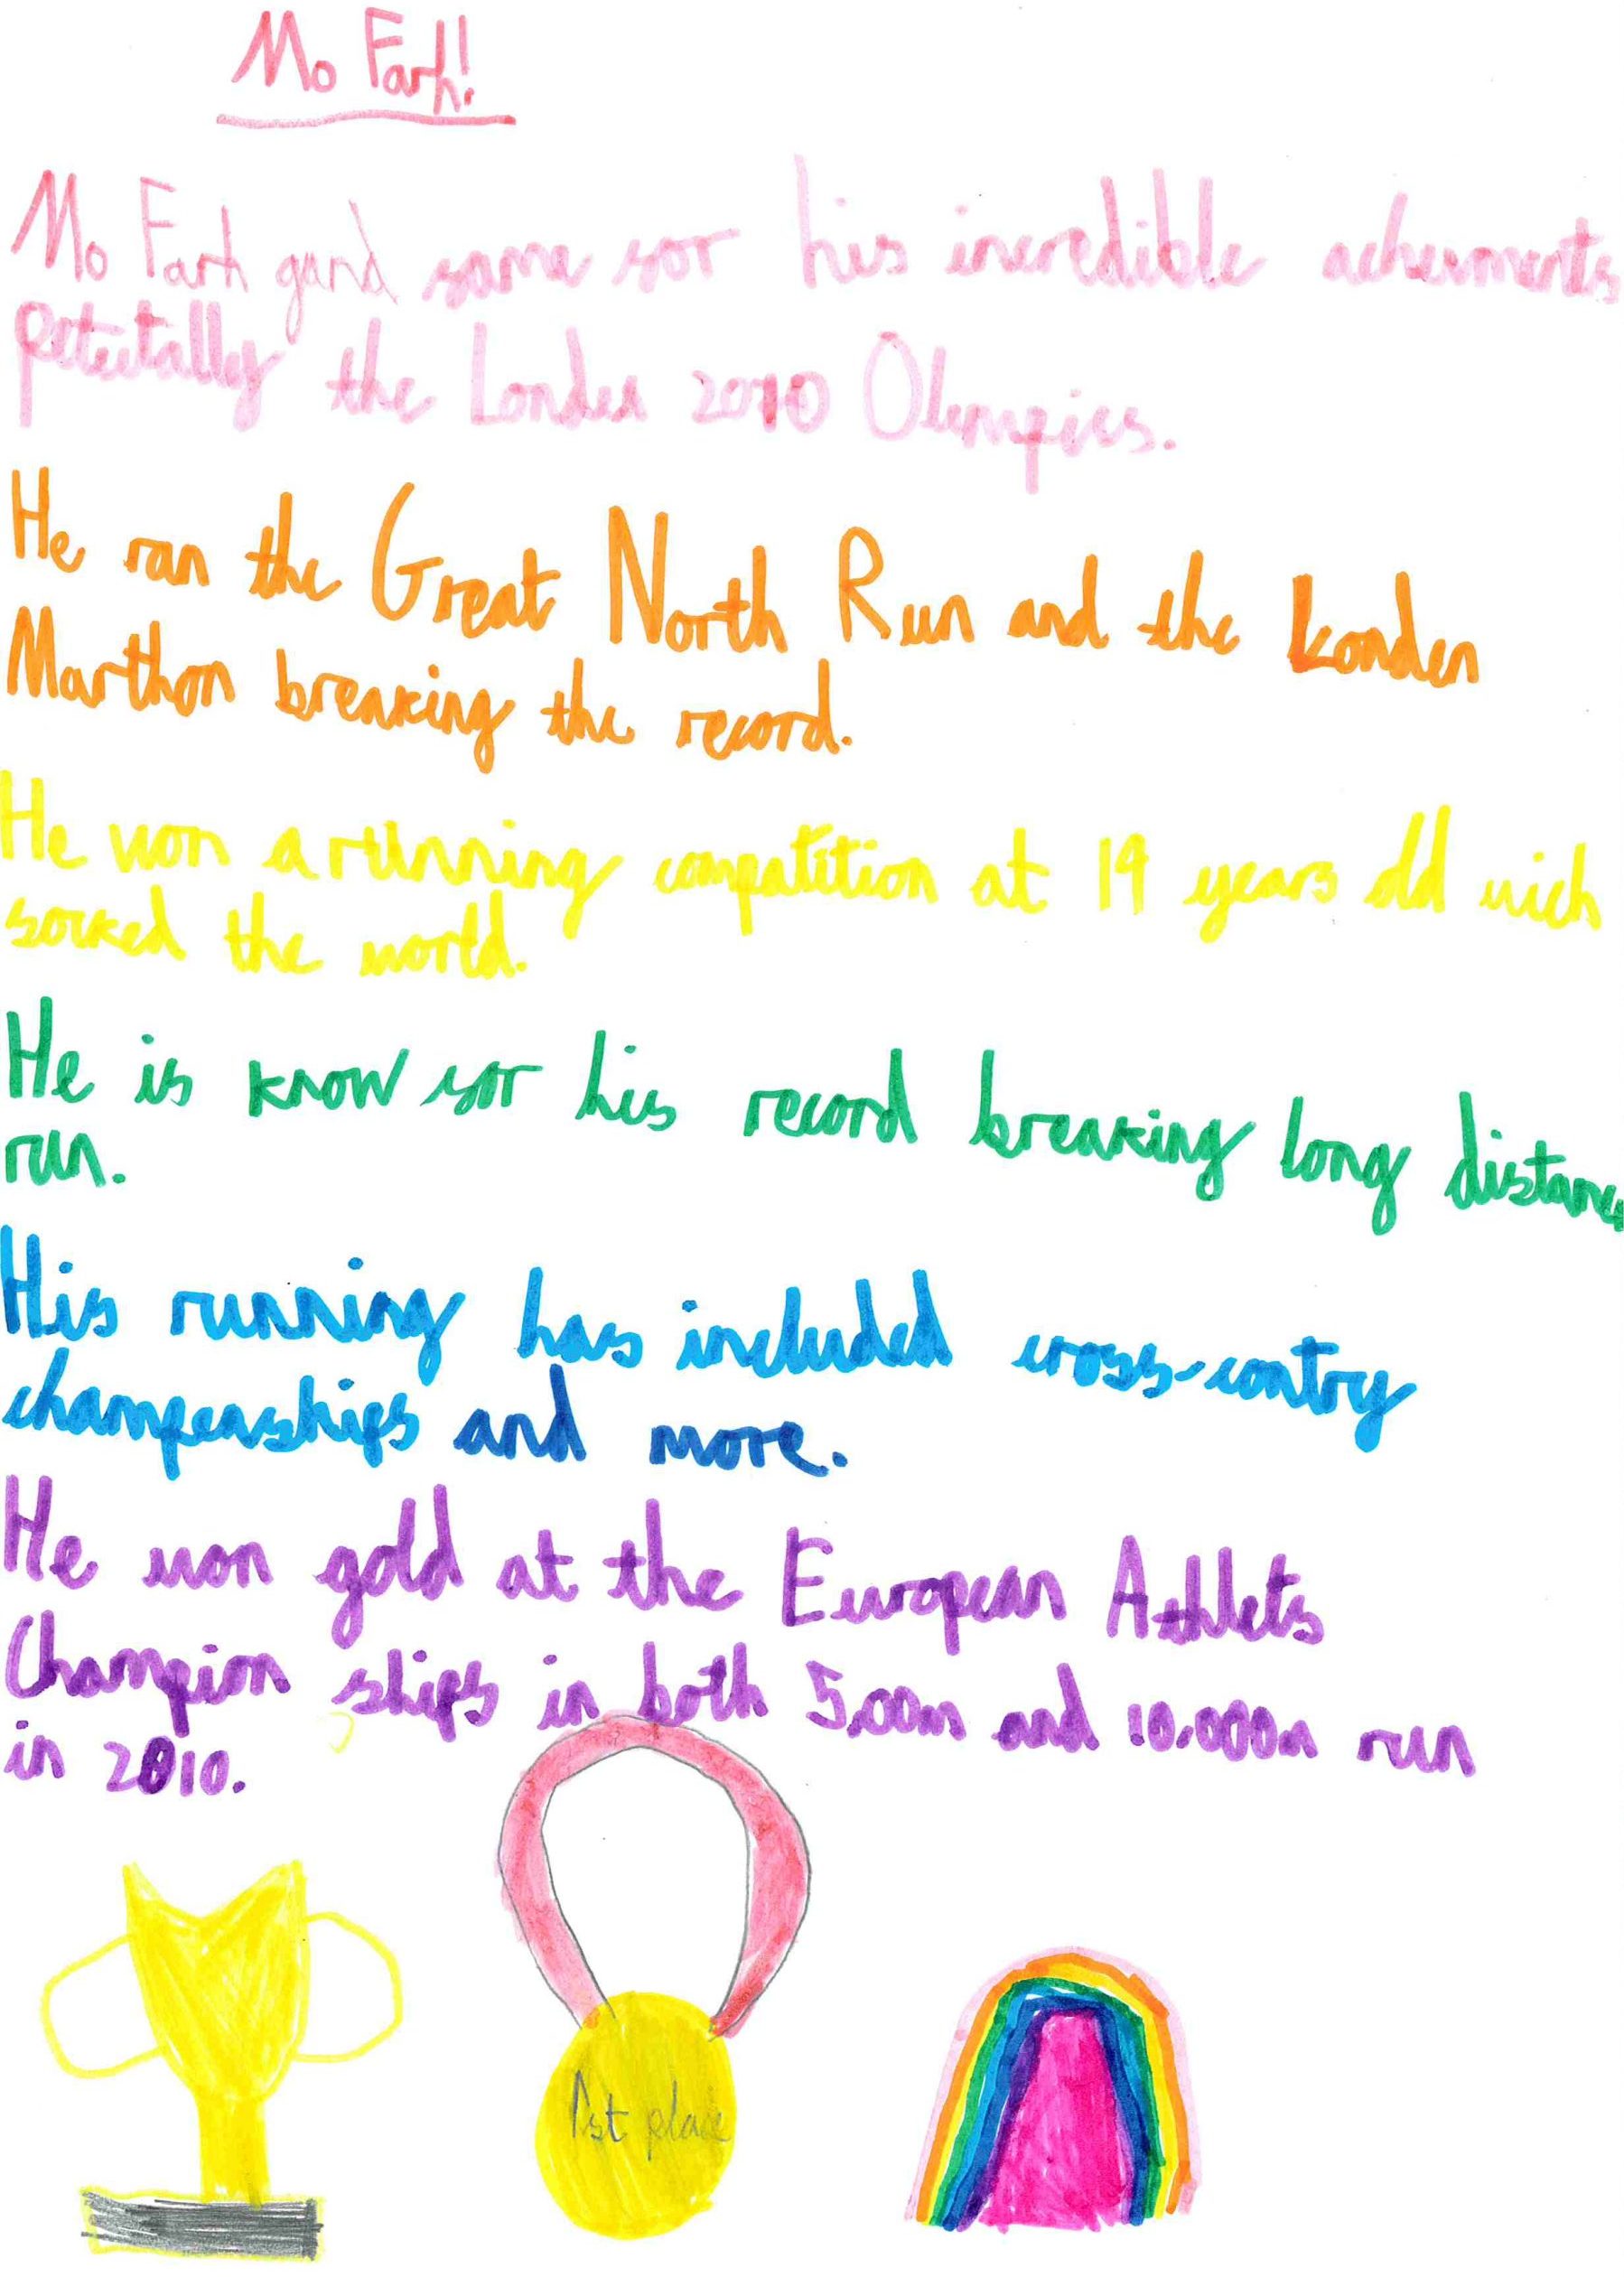 Mo Farh!
Mo Farh gand fame for his incredible acheivments
peteitally the Londen 2010 Olimpics.
He ran the Great North Run and the Londen
Marthon breaking the record.
He won a running compatition at 19 years old wich
socked the world.
He is know for his record breaking long distance
run.
His running has included cross-contry
champenships and more.
He won gold at the European Athlets
Champion ships in both 5,00m and 10,000m run
in 2010.
1st place